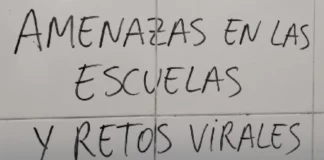 AMENAZAS EN LAS
ESCUELAS
Y RETOS VIRALES